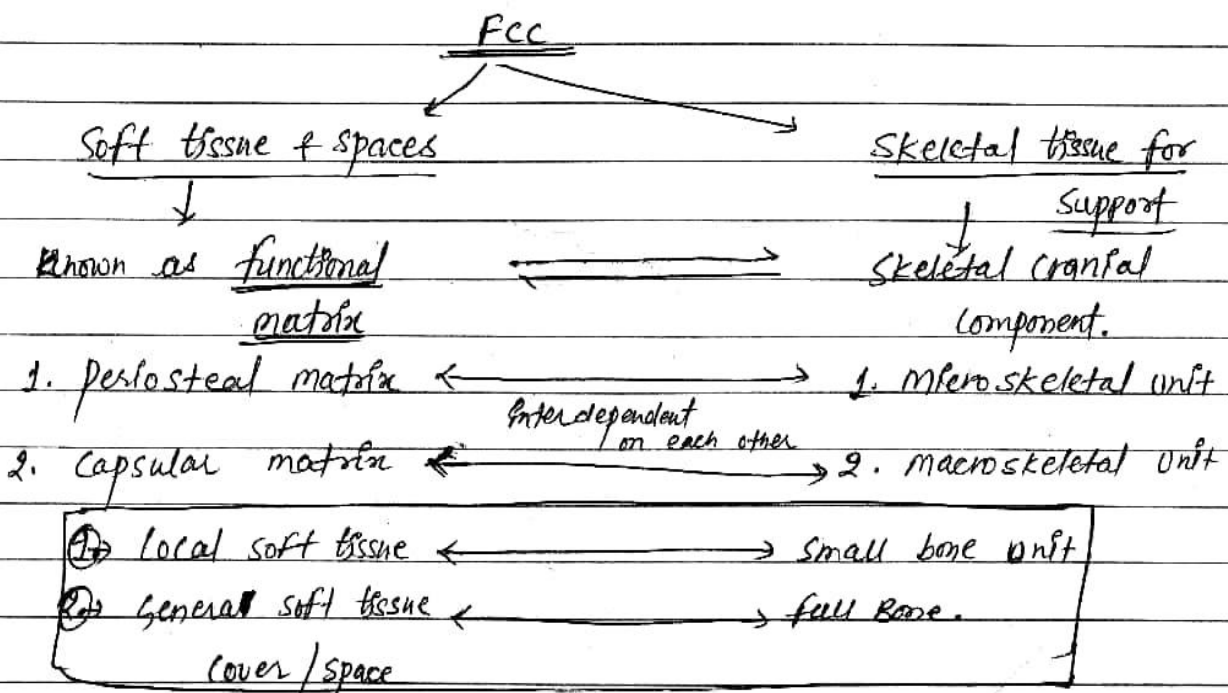 FCC
Soft tissue & spaces
Skeletal tissue for
support
Known as functional
Skeletal Cranial
matrix
Component.
1. Periosteal matrix
1. Microskeletal unit
Interdependent
on each other
2. Capsular matrix
2. Macroskeletal Unit
1→ Local soft tissue
small bone unit
2→ General soft tissue
full Bone.
Cover / Space